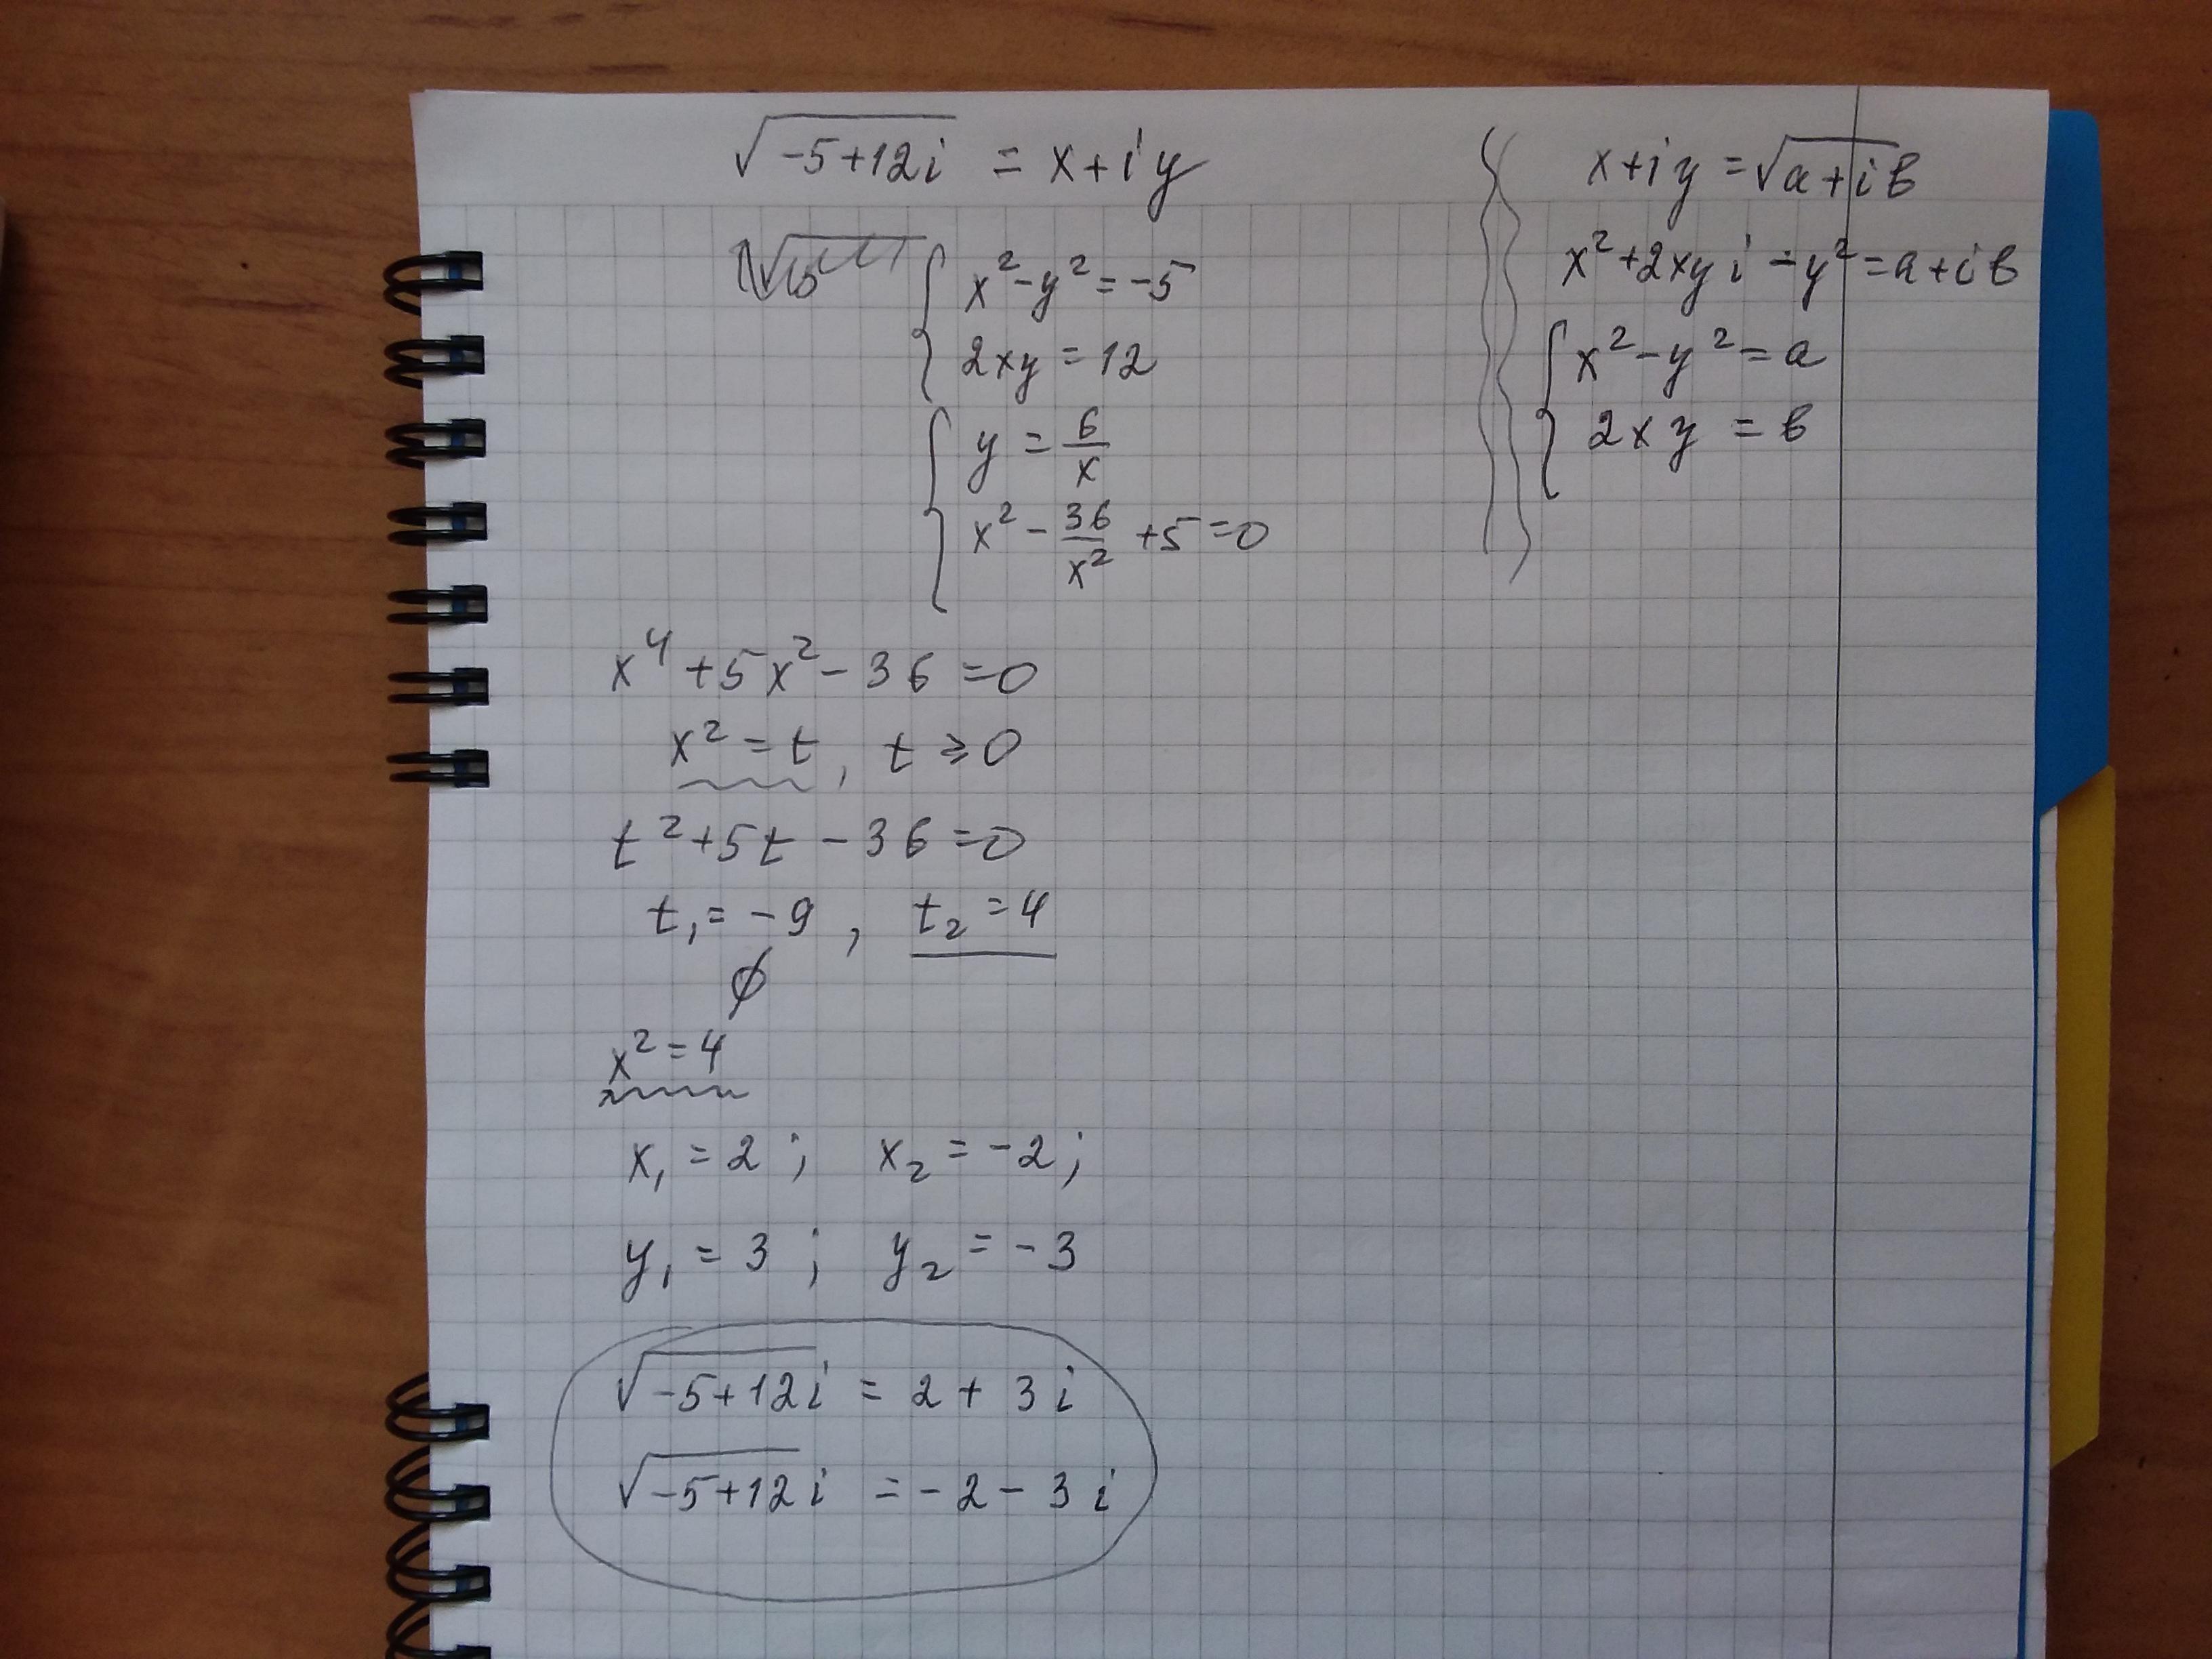 √-5+12i = x+iy
{ x²-y²=-5
2xy=12
{ y = 6/x
x² - 36/x² +5=0
x⁴+5x²-36=0
x²=t, t≥0
t²+5t-36=0
t₁=-9, t₂=4
∅
x²=4
x₁=2; x₂=-2;
y₁=3; y₂=-3
√-5+12i = 2+3i
√-5+12i = -2-3i
x+iy=√a+iв
x²+2xyi-y²=a+iв
{ x²-y²=a
2xy=в